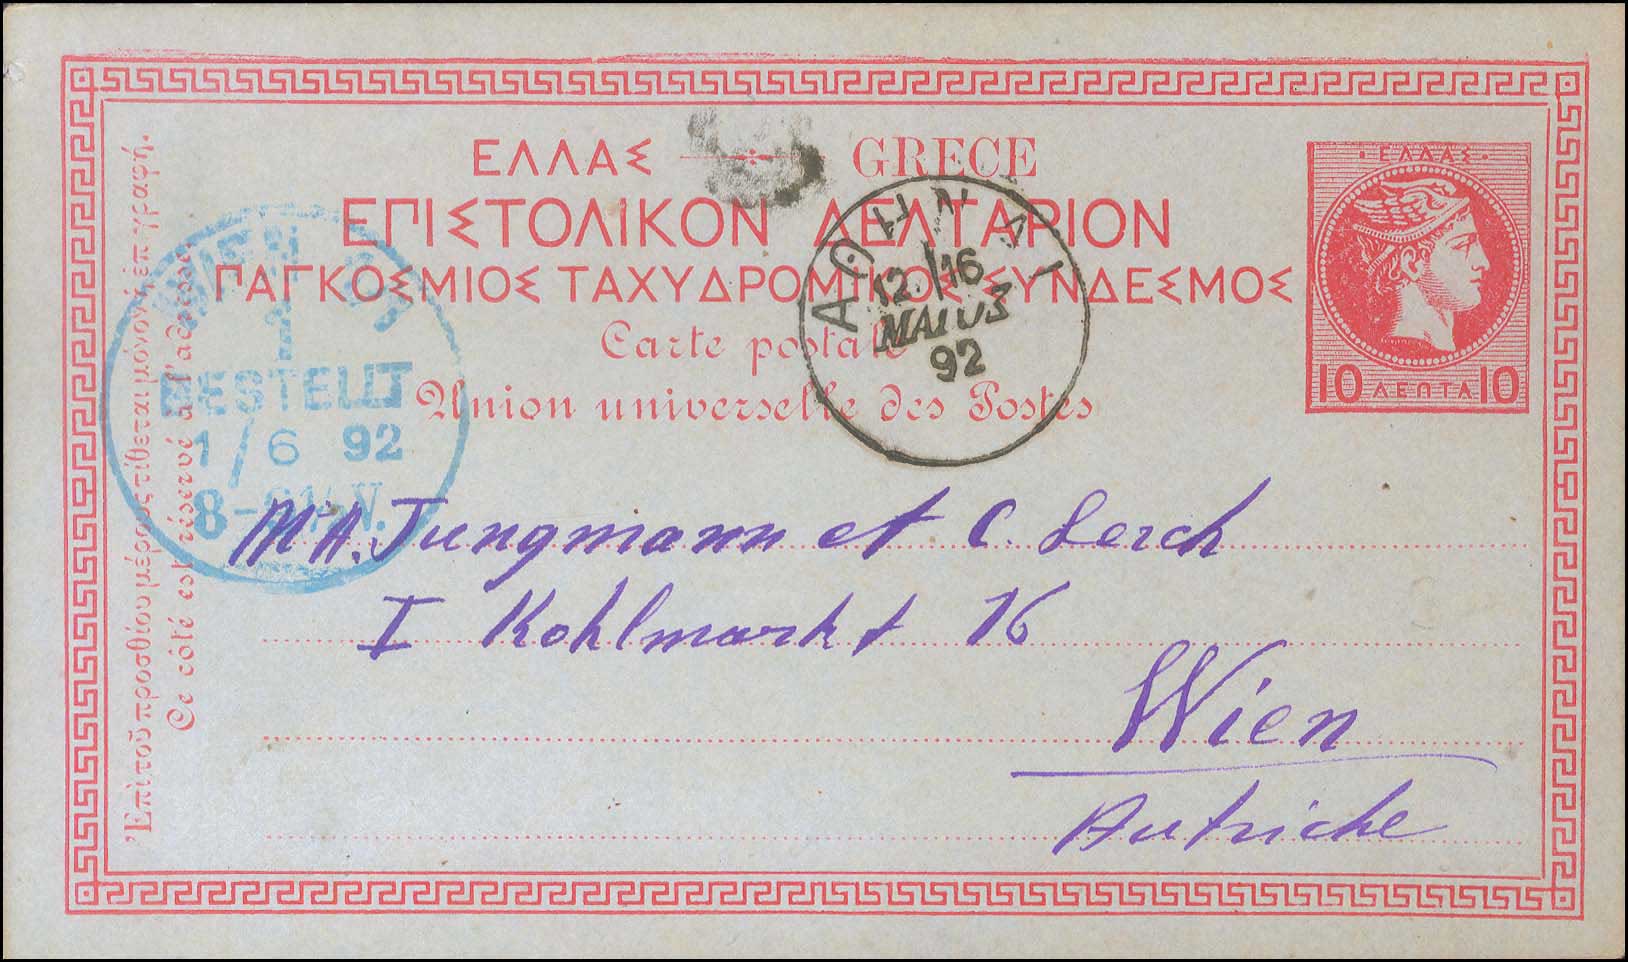 ΕΛΛΑΣ GRECE
ΕΠΙΣΤΟΛΙΚΟΝ ΔΕΛΤΑΡΙΟΝ
ΠΑΓΚΟΣΜΙΟΣ ΤΑΧΥΔΡΟΜΙΚΟΣ ΣΥΝΔΕΣΜΟΣ
Carte postale
Union universelle des Postes
· ΕΛΛΑΣ ·
10 ΛΕΠΤΑ 10
ΑΘΗΝΑΙ
12. 16
ΜΑΙΟΣ
92
WIEN
BESTELLT
1/6 92
M A. Jungmann et C. Lerch
I Kohlmarkt 16
Wien
Autriche
Ἐπὶ τοῦ προσθίου μέρους τίθεται μόνον ἡ ἐπιγραφή.
Ce côté est réservé à l'adresse.